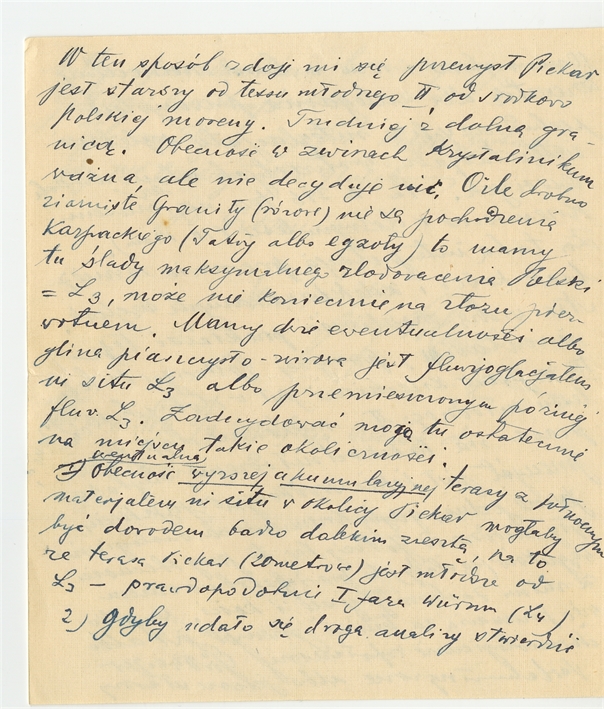 W ten sposób zdaje mi się przemysł Piekar
jest starszy od lessu młodszego II, od środkowo
polskiej moreny. Trudniej z dolną gra-
nicą. Obecność w żwirach Krystalinikum
ważna, ale nie decyduje nic. O ile drobno
ziarniste Granity (różowe) nie są pochodzenia
Karpackiego (Tatry albo egzoty) to mamy
tu ślady maksymalnego zlodowacenia Polski
= L3, może nie koniecznie na złożu pier-
wotnem. Mamy dwie ewentualności albo
glina piasczysto-żwirowa jest fluwjoglacjałem
in situ L3 albo przemieszczonym później
fluv. L3. Zadecydować mogą tu ostatecznie
na miejscu takie okoliczności.
ewentualna
1) Obecność wyższej akumulacyjnej terasy z północnym
materjałem in situ w okolicy Piekar mogłaby
być dowodem bardzo dalekim zresztą, na to
że terasa Piekar (20metrowa) jest młodsza od
L3 — prawdopodobnie I faza Würmu (L4)
2) gdyby udało się drogą analizy stwierdzić